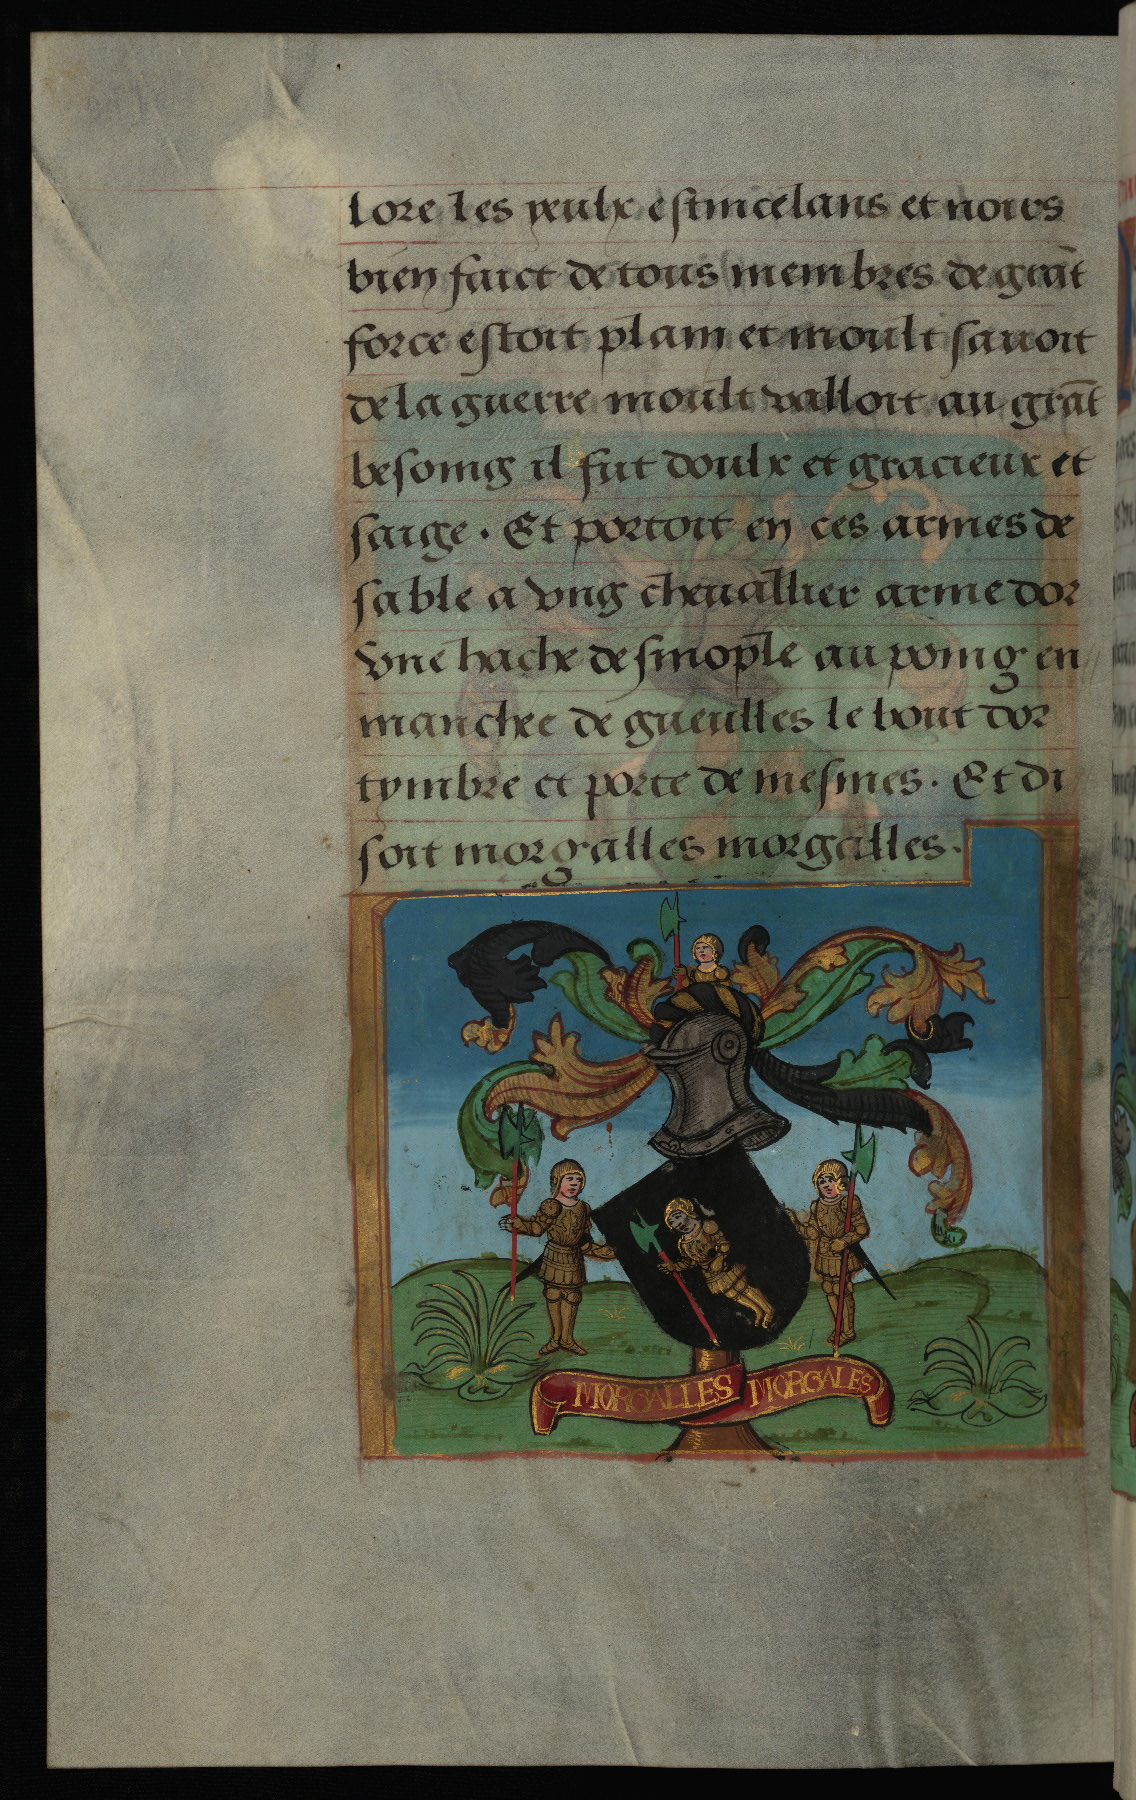 lore les yeulx estincelans et noirs
bien faict de tous membres de grāt
force estoit plain et moult sauoit
de la guerre moult valloit au grāt
besoing il fut doulx et gracieux et
saige. Et portoit en ces armes de
sable a vng cheuallier arme dor
vne hache de sinople au poing en
manchee de gueulles le bout dor
tymbre et porte de mesmes. Et di
soit morgalles morgalles.
MORGALLES MORGALES